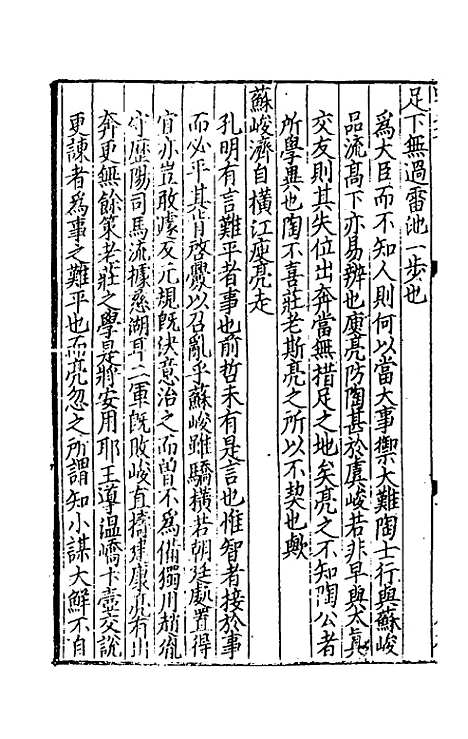 足下無過雷池一步也
爲大臣而不知人則何以當大事禦大難陶士行與蘇峻
品流高下亦易辨也庾亮防陶甚於虞峻若非早與太眞
交友則其失位出奔當無措足之地矣亮之不知陶公者
所學異也陶不喜莊老斯亮之所以不契也歟
蘇峻濟自橫江庾亮走
孔明有言難平者事也前哲未有是言也惟智者接於事
而必平其肯啓釁以召亂乎蘇峻雖驕橫若朝廷處置得
宜亦豈敢遽反元規旣決意治之而曽不爲備獨用趙𦙍
守歷陽司馬流據慈湖耳二軍旣敗峻直擣建康亮有出
奔更無餘策老莊之學是將安用耶王導溫嶠卞壼交說
更諫者爲事之難平也而亮忽之所謂知小謀大鮮不自